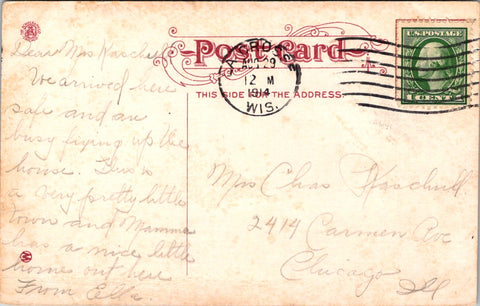 Post Card
LA CROSSE
AUG 29
12 M
1914
WIS.
U.S. POSTAGE
1 CENT 1
THIS SIDE FOR THE ADDRESS.
Dear Mrs Kaschull
We arrived here
safe and are
busy fixing up the
house. This is
a very pretty little
town and Mamma
has a nice little
home out here
From Ella.
Mrs Chas Kaschull
2414 Carmen Ave
Chicago
Ill